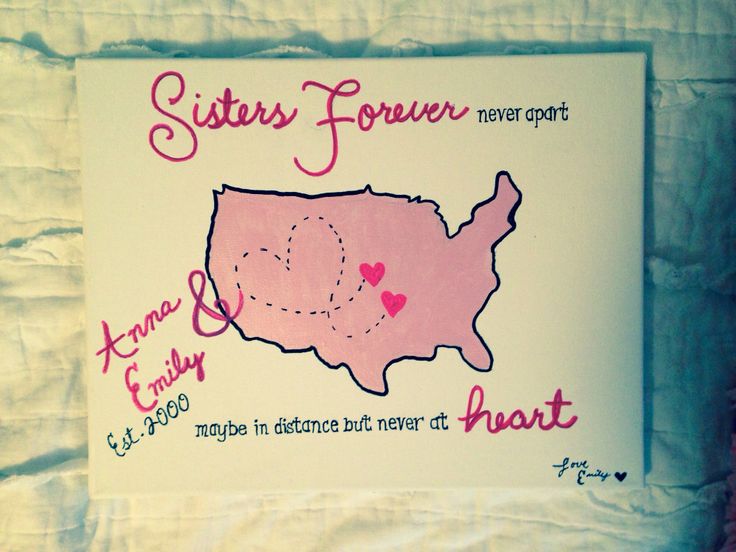 Sisters Forever never apart
Anna &
Emily
Est. 2000
maybe in distance but never at heart
Love
Emily